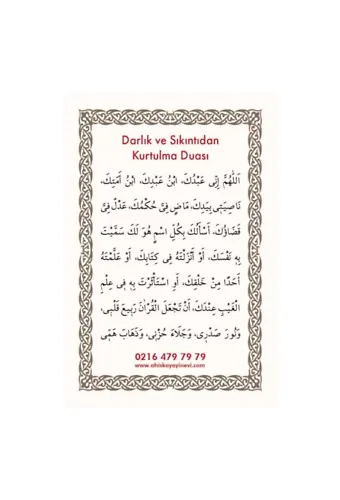 Darlık ve Sıkıntıdan
Kurtulma Duası
اَللّٰهُمَّ اِنِّى عَبْدُكَ، اِبْنُ عَبْدِكَ، اِبْنُ اَمَتِكَ،
نَاصِيَتِى بِيَدِكَ، مَاضٍ فِىَّ حُكْمُكَ، عَدْلٌ فِىَّ
قَضَاؤُكَ، اَسْاَلُكَ بِكُلِّ اسْمٍ هُوَ لَكَ سَمَّيْتَ
بِهِ نَفْسَكَ، اَوْ اَنْزَلْتَهُ فِى كِتَابِكَ، اَوْ عَلَّمْتَهُ
اَحَدًا مِنْ خَلْقِكَ، اَوِ اسْتَأْثَرْتَ بِهِ فِى عِلْمِ
الْغَيْبِ عِنْدَكَ، اَنْ تَجْعَلَ الْقُرْاٰنَ رَبِيعَ قَلْبِى،
وَنُورَ صَدْرِى، وَجَلَاءَ حُزْنِى، وَذَهَابَ هَمِّى
0216 479 79 79
www.ahiskayayinevi.com